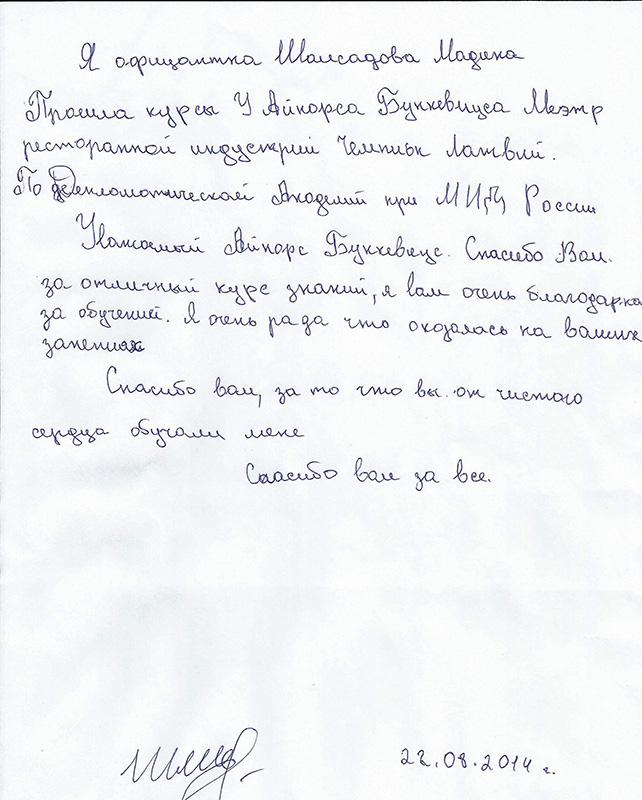 Я официантка Шамсадова Мадина
Прошла курсы У Айнарса Бункевицса Мэтр
ресторанной индустрий Чемпион Латвий.
По Депломотической Академий при МИД России
Уважаемый Айнарс Бункевицс. Спасибо Вам.
за отличный курс знаний, я вам очень благодарна
за обучений. Я очень рада что оказалась на ваших
занетиях
Спасибо вам, за то что вы от чистого
сердца обучали мене
Спасибо вам за все.
22.08.2014 г.